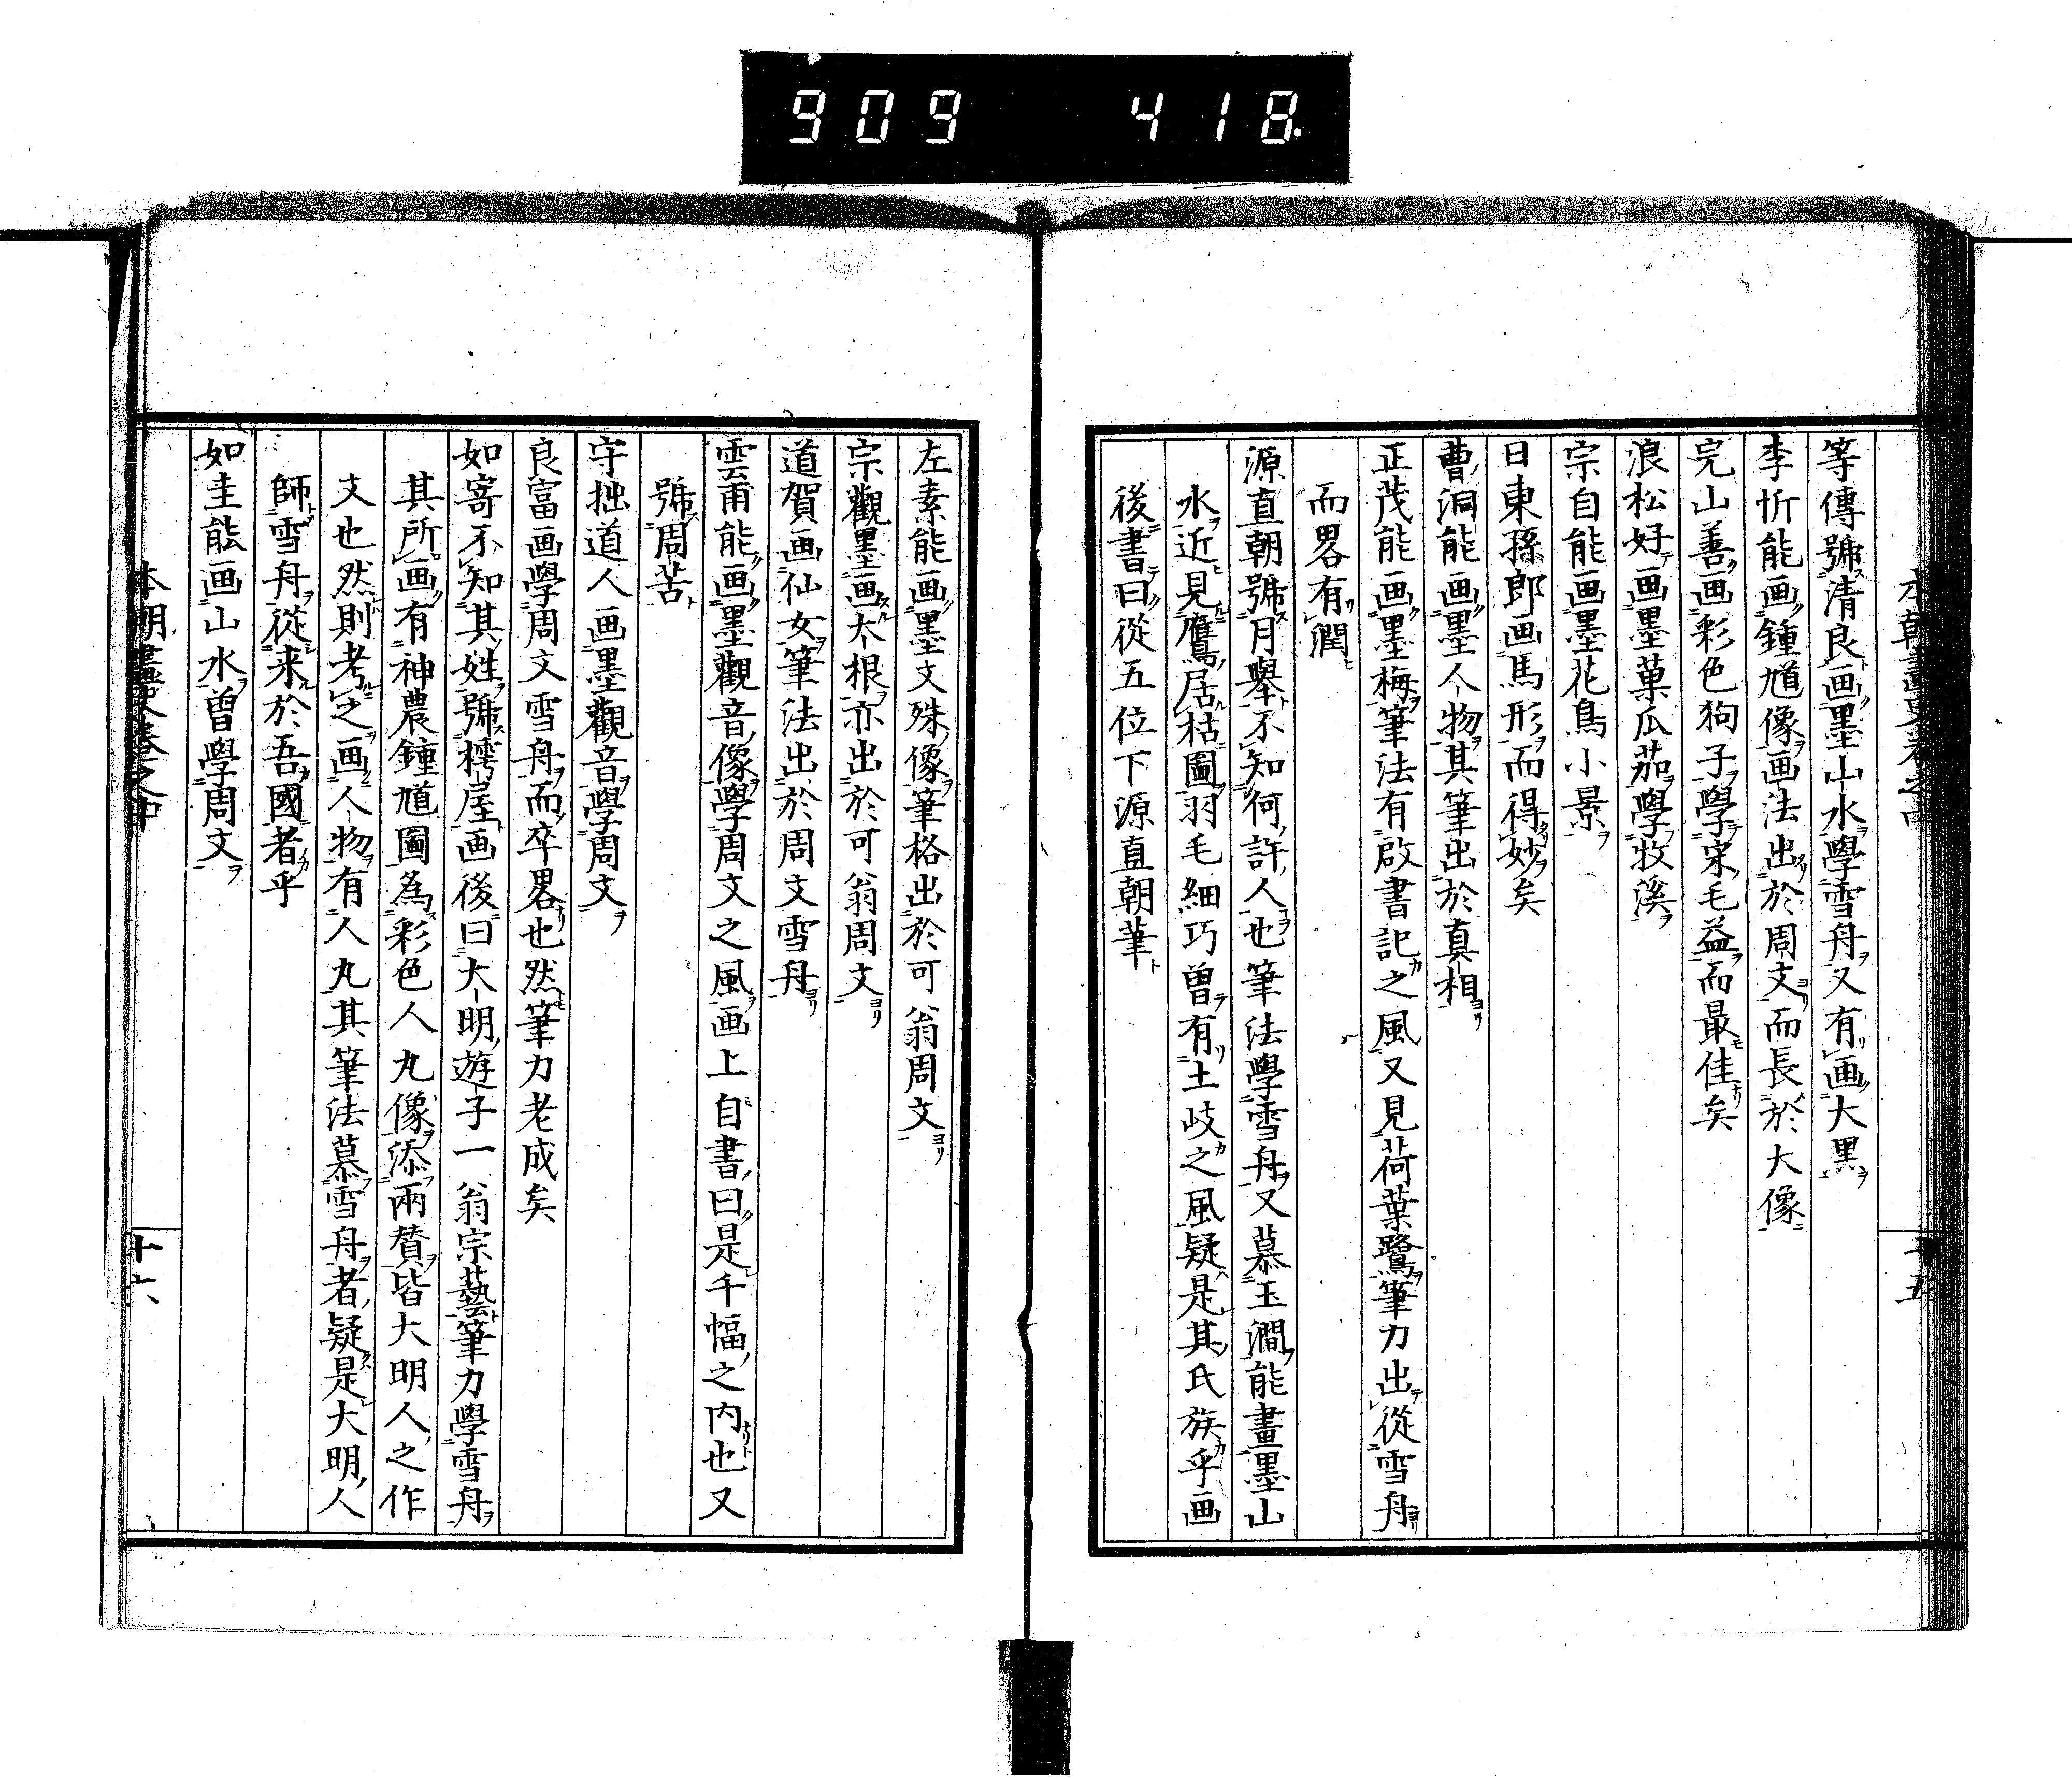 909 418.
等傳號清良画墨山水學雪舟又有画大黒
李忻能画鍾馗像画法出於周文而長於大像
完山善画彩色狗子學宋毛益而最佳矣
浪松好画墨菓瓜茄學牧溪
宗自能画墨花鳥小景
日東孫郎画馬形而得妙矣
曹洞能画墨人物其筆出於真相
正茂能画墨梅筆法有啟書記之風又見荷葉鷺筆力出從雪舟
而畧有潤
源直朝號月舉不知何許人也筆法學雪舟又慕玉澗能畫墨山
水近見鷹居枯圖羽毛細巧曽有土岐之風疑是其氏族乎画
後書曰從五位下源直朝筆
左素能画墨文殊像筆格出於可翁周文
宗觀墨画大根亦出於可翁周文
道賀画仙女筆法出於周文雪舟
雲甫能画墨觀音像學周文之風画上自書曰是千幅之内也又
號周苦
守拙道人画墨觀音學周文
良富画學周文雪舟而卒畧也然筆力老成矣
如寄不知其姓號樗屋画後曰大明遊子一翁宗藝筆力學雪舟
其所画有神農鍾馗圖為彩色人丸像添兩賛皆大明人之作
文也然則考之画人物有人丸其筆法慕雪舟者疑是大明人
師雪舟從来於吾國者乎
如圭能画山水曽學周文
十六